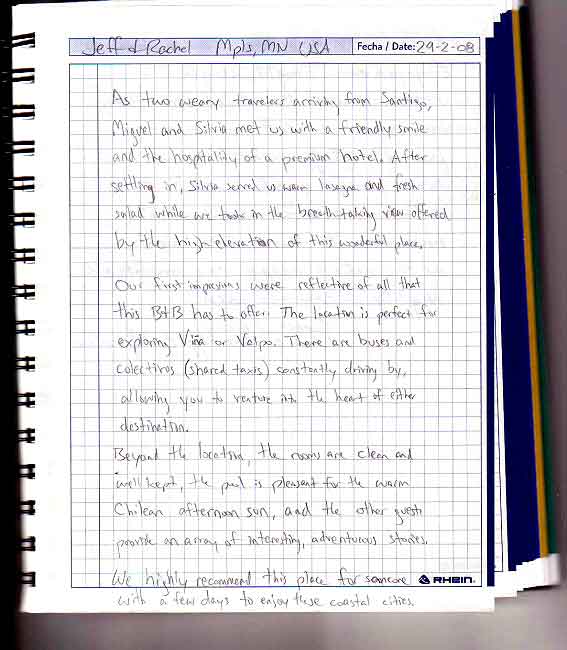 Jeff & Rachel Mpls, MN USA Fecha / Date: 29-2-08
As two weary travelers arriving from Santigo,
Miguel and Silvia met us with a friendly smile
and the hospitality of a premium hotel. After
settling in, Silvia served us warm lasagna and fresh
salad while we took in the breath taking view offered
by the high elevation of this wonderful place.
Our first impressions were reflective of all that
this B&B has to offer. The location is perfect for
exploring Viña or Valpo. There are buses and
colectivos (shared taxis) constantly driving by,
allowing you to venture into the heart of either
destination.
Beyond the location, the rooms are clean and
well kept, the pool is pleasant for the warm
Chilean afternoon sun, and the other guests
provide an array of interesting, adventurous stories.
We highly recommend this place for someone RHEIN
with a few days to enjoy these coastal cities.